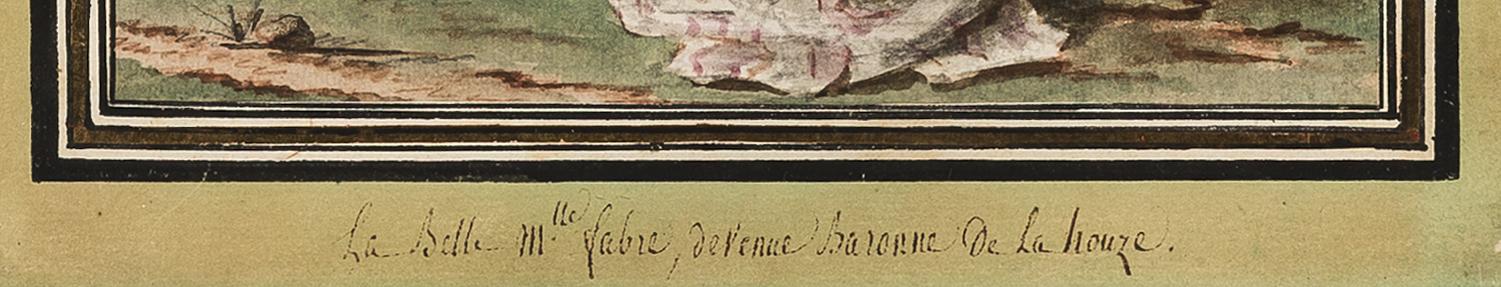 La Belle Mlle fabre, devenue Baronne De La houze.